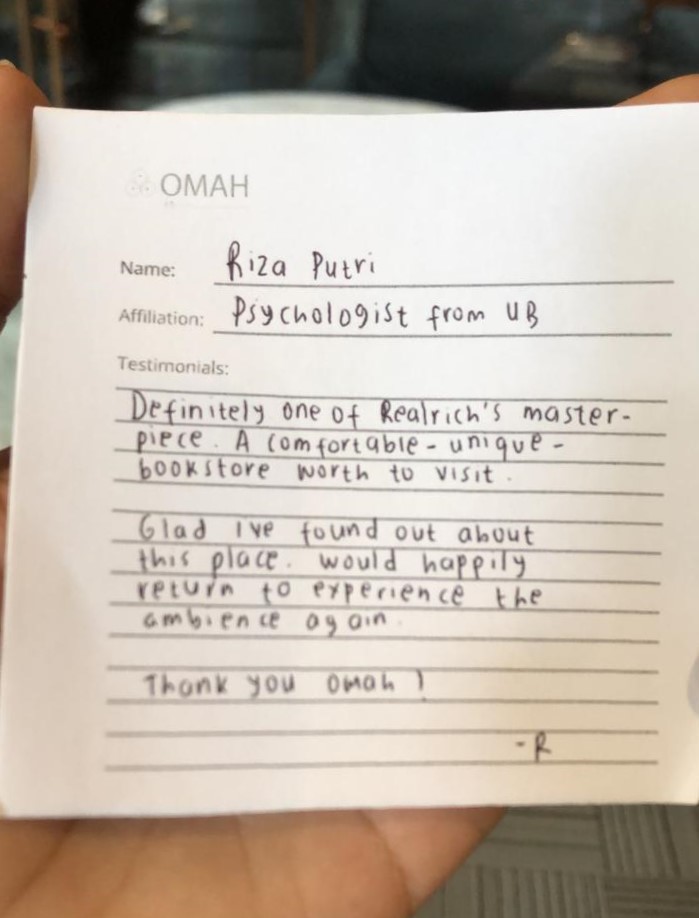 OMAH
Name: Riza Putri
Affiliation: Psychologist from UB
Testimonials:
Definitely one of Realrich's master-
piece. A comfortable - unique -
bookstore worth to visit.
Glad i've found out about
this place. would happily
return to experience the
ambience again.
Thank you Omah!
-R